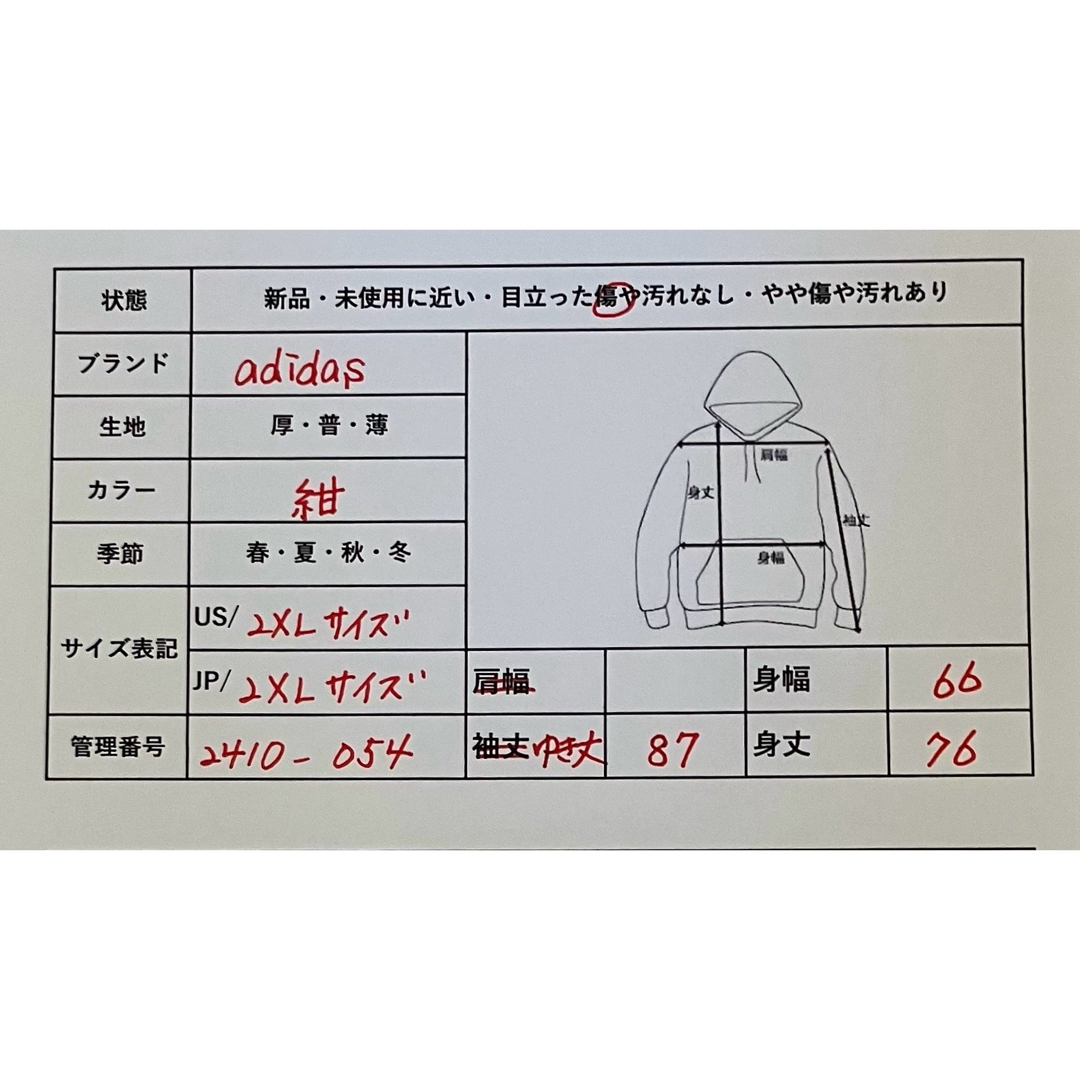 状態 新品・未使用に近い・目立った傷や汚れなし・やや傷や汚れあり
ブランド adidas
生地 厚・普・薄
カラー 紺
季節 春・夏・秋・冬
サイズ表記 US/ 2XLサイズ
JP/ 2XLサイズ
管理番号 2410-054
肩幅
身丈
袖丈
身幅
肩幅 身幅 66
袖丈 ゆき丈 87 身丈 76